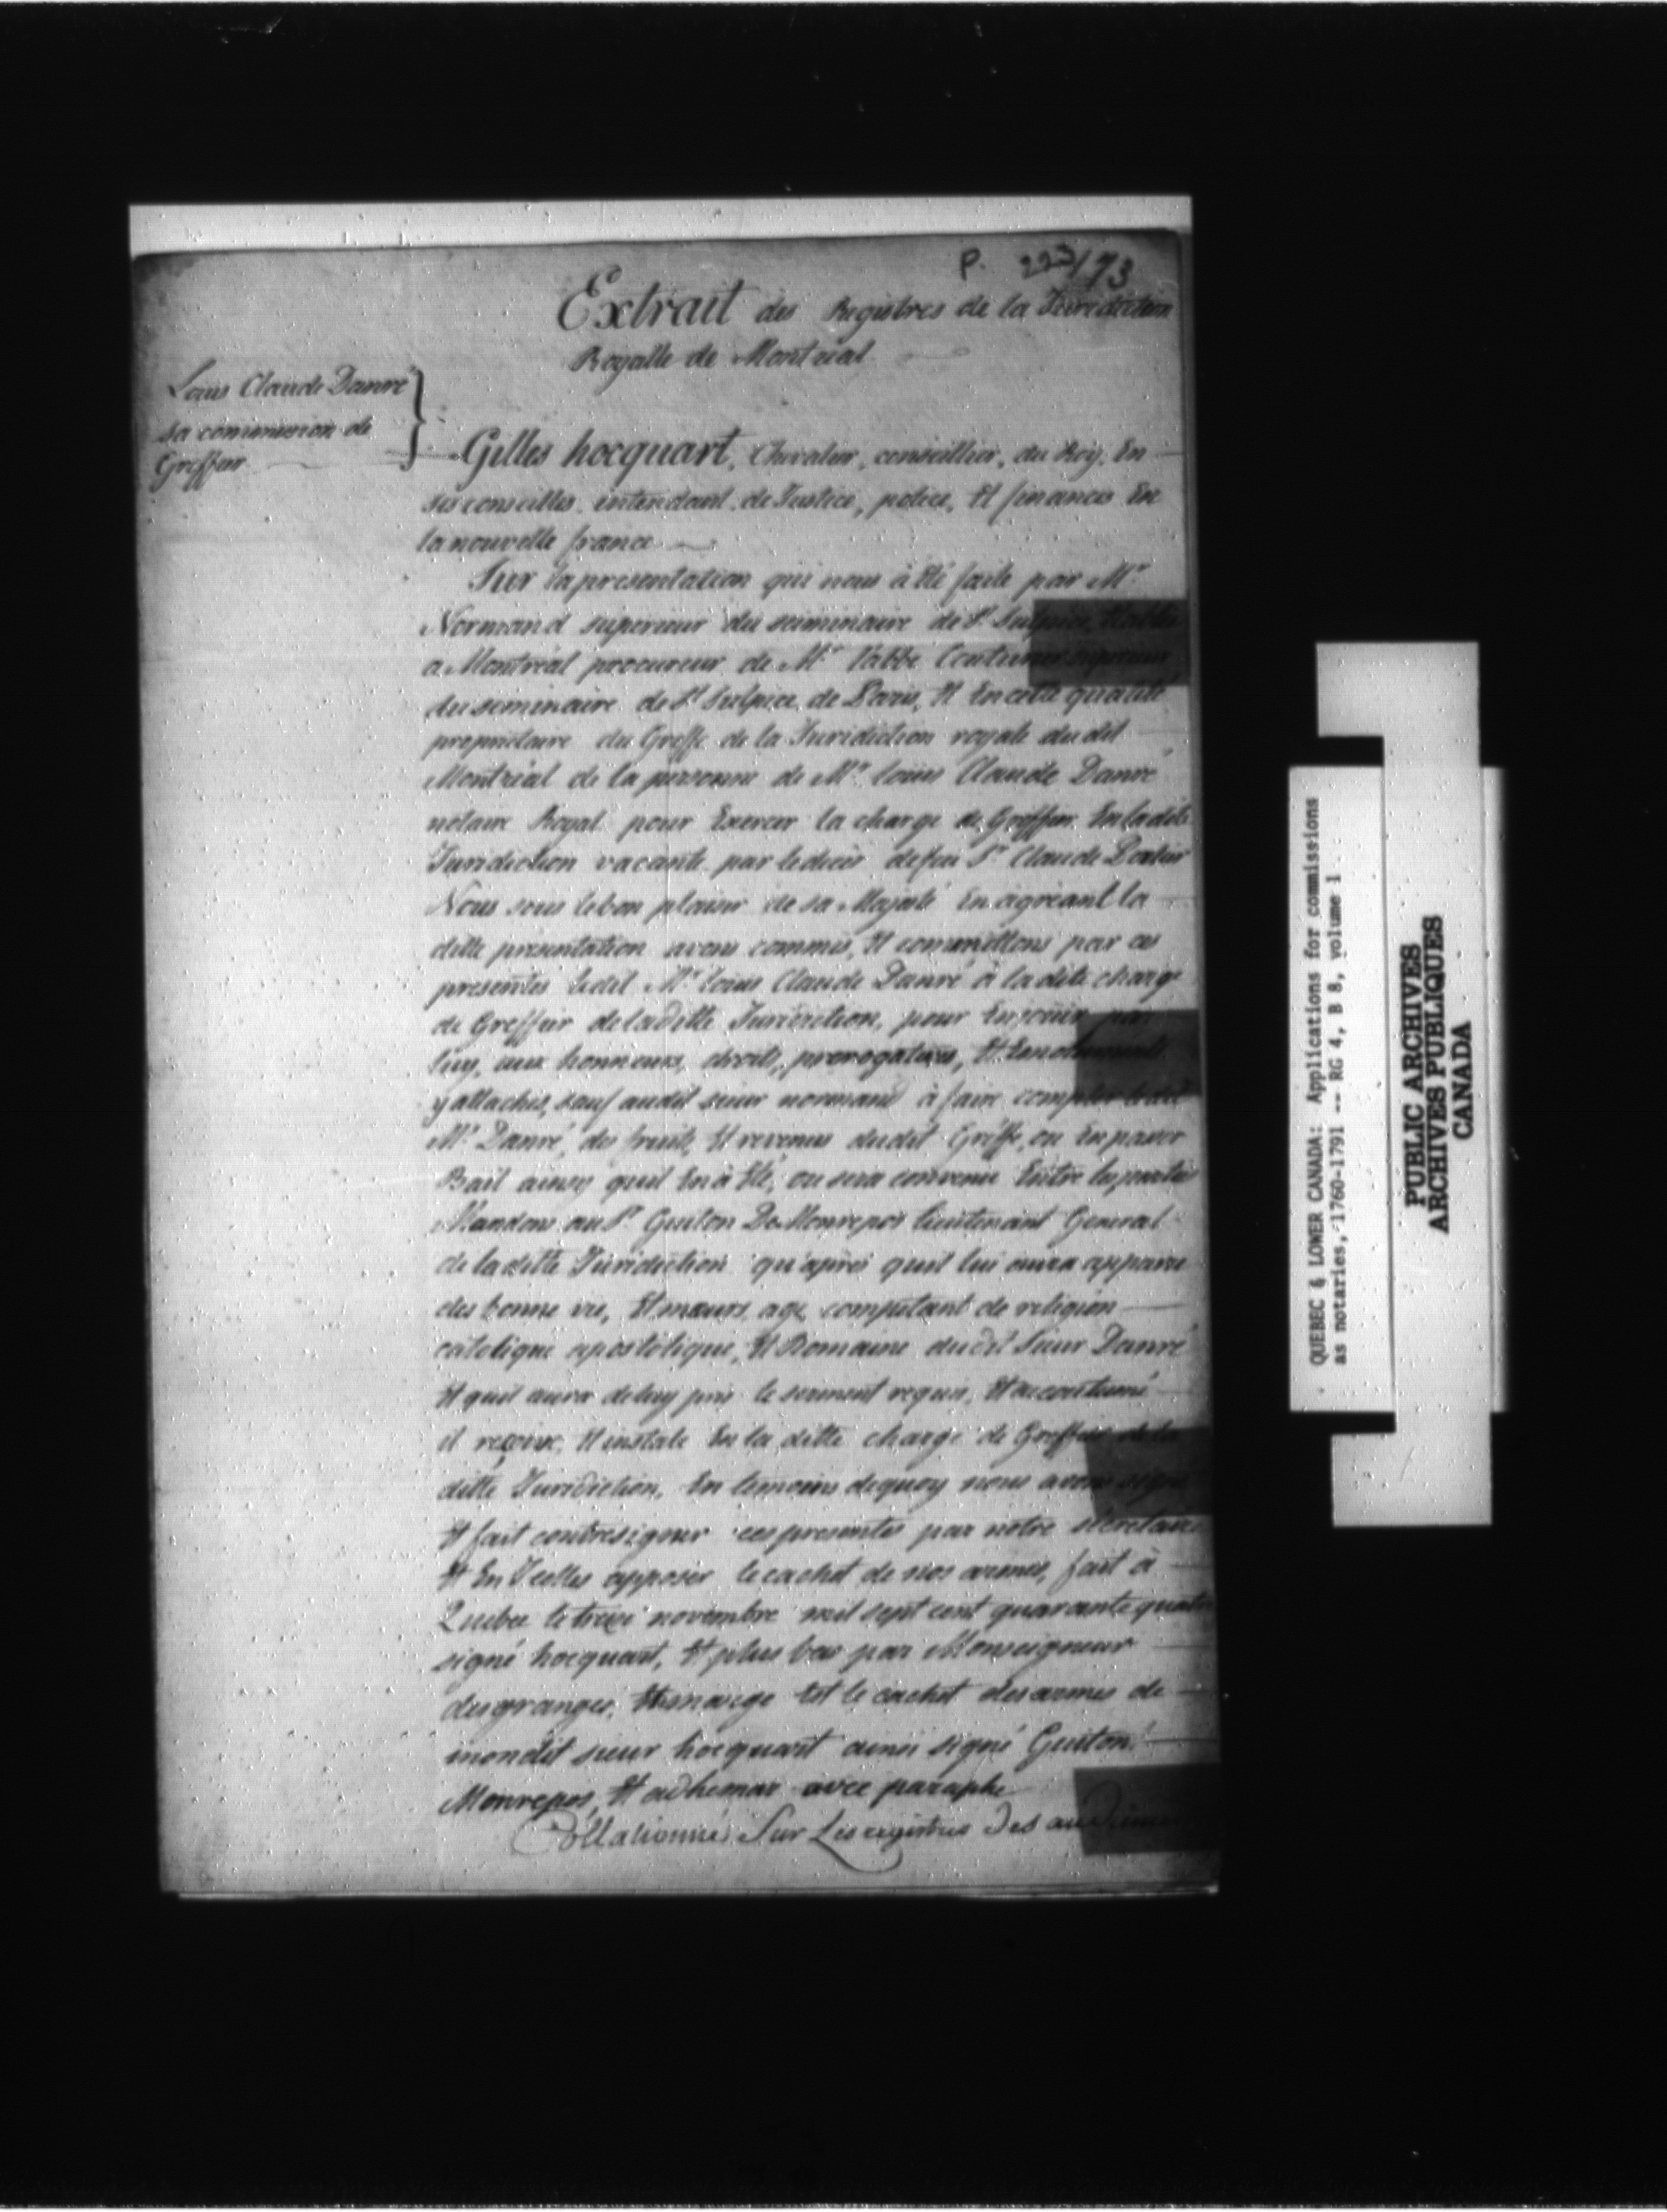 P. 223/73
Extrait des Registres de la Jurediction
Royalle de Montreal
Louis Claude Danré
sa commission de
Greffier
Gilles hocquart, Chevalier, conseillier, du Roy, En
ses conseilles intendant de Justice, police, Et finances En
la nouvelle france
Sur la presentation qui nous à été faite par Mr
Normand superieur du seiminaire de St Sulpice, Etablie
a Montréal procureur de Mr l'abbé Couturier superieur
du seminaire de St Sulpice de Paris, Et En cette qualité
proprietaire du Greffe de la Juridiction royale du dit
Montréal de la personne de Mr louis Claude Danré
notaire Royal pour Exercer la charge de Greffier En ladite
Juridiction vacante par le deces de feu Sr Claude Porlier
Nous sous le bon plaisir de sa Majesté En agréant la
ditte presentation avons commis, Et commettons par ces
presentes ledit Mr louis Claude Danré à la dite charge
de Greffier de laditte Juridiction, pour En jouir par
luy, aux honneurs, droits, prerogatives, Et Emoluments
y attachés, sauf audit sieur normand à faire compter ledit
Mr Danré, des fruits Et revenus dudit Greffe, ou En passer
Bail ainsy quil En à Eté, ou sera convenu Entre les parties
Mandons au Sr Guiton De Monrepos lieutenant General
de laditte Juridiction qu'après quil lui aura apparu
des bonne vie, Et mœurs, age competant de religion
catolique apostolique, Et Romaine dudit Sieur Danré
Et quil aura de luy pris le serment requis, Et accoutumé
il reçoive, Et instale En la ditte charge de Greffier de la
ditte Juridiction, En temoins dequoy nous avons signé
Et fait contresigner ces presentes par notre secretaire
Et En Icelles apposer le cachet de nos armes, fait à
Quebec le treize novembre mil sept cent quarante quatre
signé hocquart, Et plus bas par Monseigneur
desgranges, En marge Est le cachet des armes de
mondit sieur hocquart ainsi signé Guiton
Monrepos, Et adhemar avec paraphe
Collationné Sur Les registres Des audiences
QUEBEC & LOWER CANADA: Applications for commissions
as notaries, 1760-1791 -- RG 4, B 8, volume 1
PUBLIC ARCHIVES
ARCHIVES PUBLIQUES
CANADA